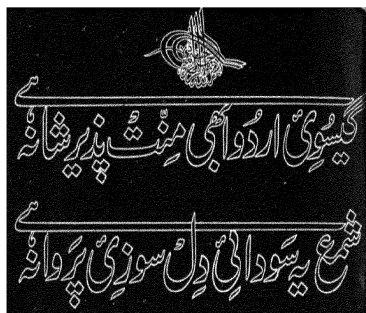 گیسُوئ اردُو ابھی مِنّت پذیرِ شانہ ہے
شمع یہ سَودائیِ دِل سوزیِ پَروانہ ہے